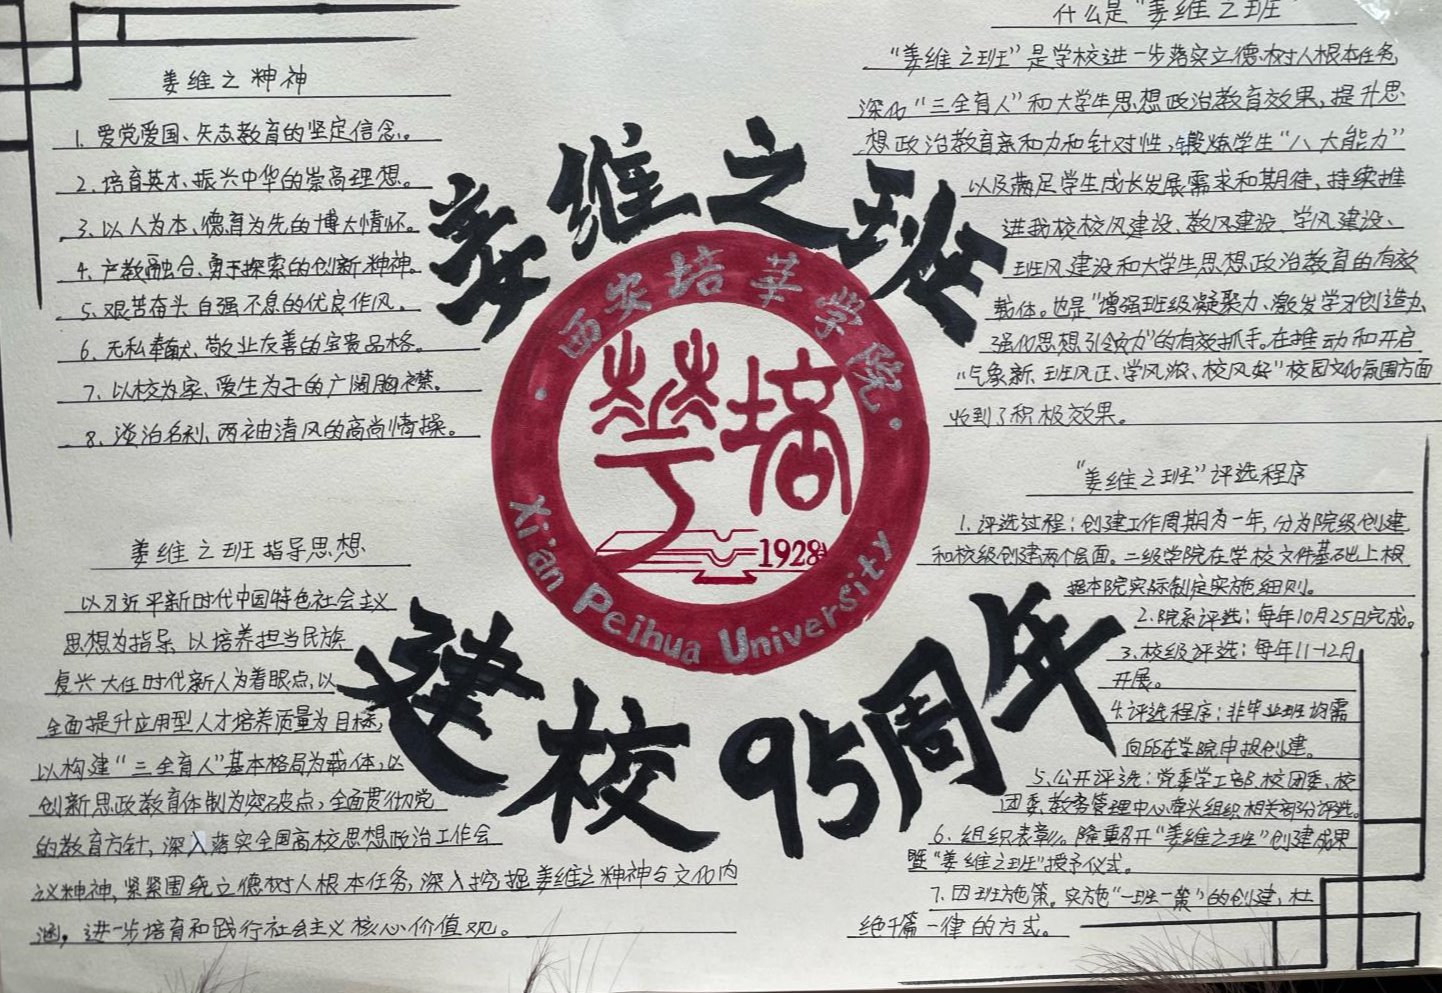 姜维之精神
1、爱党爱国、矢志教育的坚定信念。
2、培育英才、振兴中华的崇高理想。
3、以人为本、德育为先的博大情怀。
4、产教融合、勇于探索的创新精神。
5、艰苦奋斗、自强不息的优良作风。
6、无私奉献、敬业友善的宝贵品格。
7、以校为家、爱生为子的广阔胸襟。
8、淡泊名利、两袖清风的高尚情操。
姜维之班指导思想
以习近平新时代中国特色社会主义
思想为指导,以培养担当民族
复兴大任时代新人为着眼点,以
全面提升应用型人才培养质量为目标,
以构建“三全育人”基本格局为载体,以
创新思政教育体制为突破点,全面贯彻党
的教育方针,深入落实全国高校思想政治工作会
议精神,紧紧围绕立德树人根本任务,深入挖掘姜维之精神与文化内
涵,进一步培育和践行社会主义核心价值观。
姜维之班
西安培华学院
培华
1928
Xi'an Peihua University
建校95周年
什么是“姜维之班”
“姜维之班”是学校进一步落实立德树人根本任务,
深化“三全育人”和大学生思想政治教育效果,提升思
想政治教育亲和力和针对性,锻炼学生“八大能力”
以及满足学生成长发展需求和期待,持续推
进我校校风建设、教风建设、学风建设、
班风建设和大学生思想政治教育的有效
载体。也是“增强班级凝聚力、激发学习创造力、
强化思想引领力”的有效抓手。在推动和开启
“气象新、班风正、学风浓、校风好”校园文化氛围方面
收到了积极效果。
“姜维之班”评选程序
1.评选过程:创建工作周期为一年,分为院级创建
和校级创建两个层面。二级学院在学校文件基础上根
据本院实际制定实施细则。
2.院系评选:每年10月25日完成。
3.校级评选:每年11-12月
开展。
4.评选程序:非毕业班均需
向所在学院申报创建。
5.公开评选:党委学工部、校团委、校
团委、教务管理中心牵头组织相关部分评选。
6.组织表彰。隆重召开“姜维之班”创建成果
暨“姜维之班”授予仪式。
7.因班施策。实施“一班一策”的创建,杜
绝千篇一律的方式。